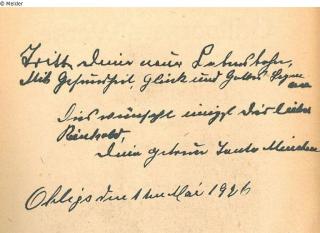 © Melder
Tritt Deine neue Lebensbahn,
Mit Gesundheit, Glück und Gottes Segen an
Dies wünscht innigst Dir lieber
Reinhold,
Deine getreue Tante Minchen
Ohligs den 1ten Mai 1926